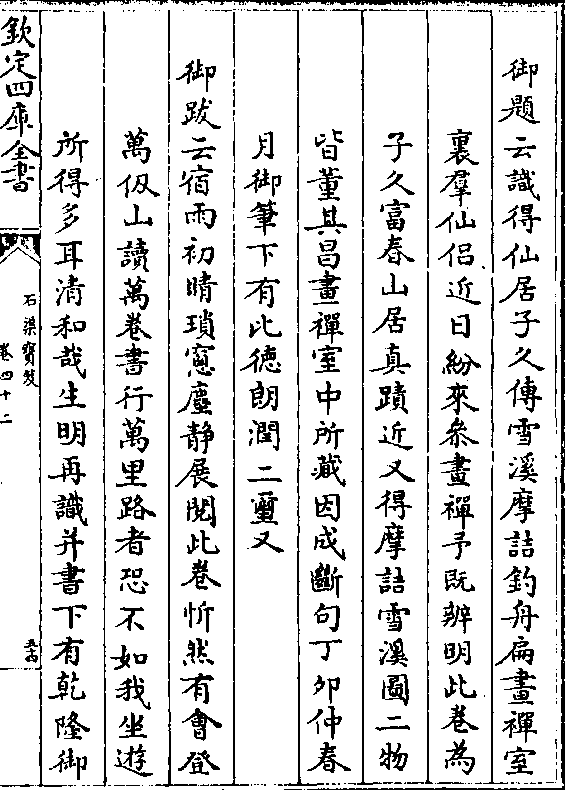 御題云識得仙居子久傳雪溪摩詰釣舟扁畫禪室
裏羣仙侣近日紛來叅畫禪予既辨明此卷為
子久富春山居真蹟近又得摩詰雪溪圖二物
皆董其昌畫禪室中所藏因成斷句丁夘仲春
月御筆下有比徳朗潤二璽又
御跋云宿雨初晴瑣窓塵静展閲此卷忻然有會登
萬仭山讀萬卷書行萬里路者恐不如我坐遊
所得多耳清和哉生明再識并書下有乾隆御
欽定四庫全書
石渠寶笈
卷四十二
五十四